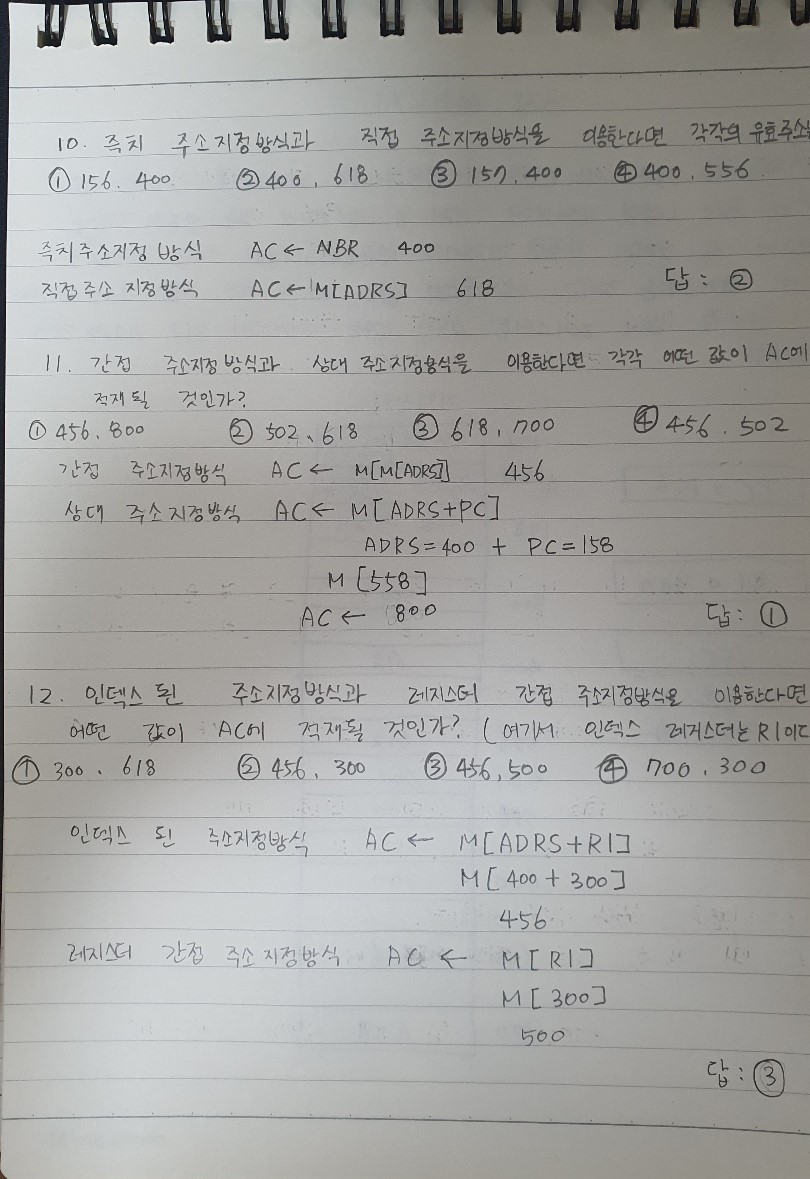 10. 즉치 주소지정방식과 직접 주소지정방식을 이용한다면 각각의 유효주소는
① 156. 400 ② 400, 618 ③ 157, 400 ④ 400, 556
즉치주소지정 방식 AC ← NBR 400
직접주소 지정방식 AC ← M[ADRS] 618 답 : ②
11. 간접 주소지정방식과 상대 주소지정방식을 이용한다면 각각 어떤 값이 AC에
적재될 것인가?
① 456, 800 ② 502, 618 ③ 618, 700 ④ 456. 502
간접 주소지정방식 AC ← M[M[ADRS]] 456
상대 주소지정방식 AC ← M[ADRS+PC]
ADRS=400 + PC=158
M [558]
AC ← 800 답 : ①
12. 인덱스 된 주소지정방식과 레지스터 간접 주소지정방식을 이용한다면
어떤 값이 AC에 적재될 것인가? (여기서 인덱스 레거스터는 R1이다
① 300. 618 ② 456, 300 ③ 456, 500 ④ 700, 300
인덱스 된 주소지정방식 AC ← M[ADRS+R1]
M[400 + 300]
456
레지스터 간접 주소지정방식 AC ← M[R1]
M[300]
500
답 : ③